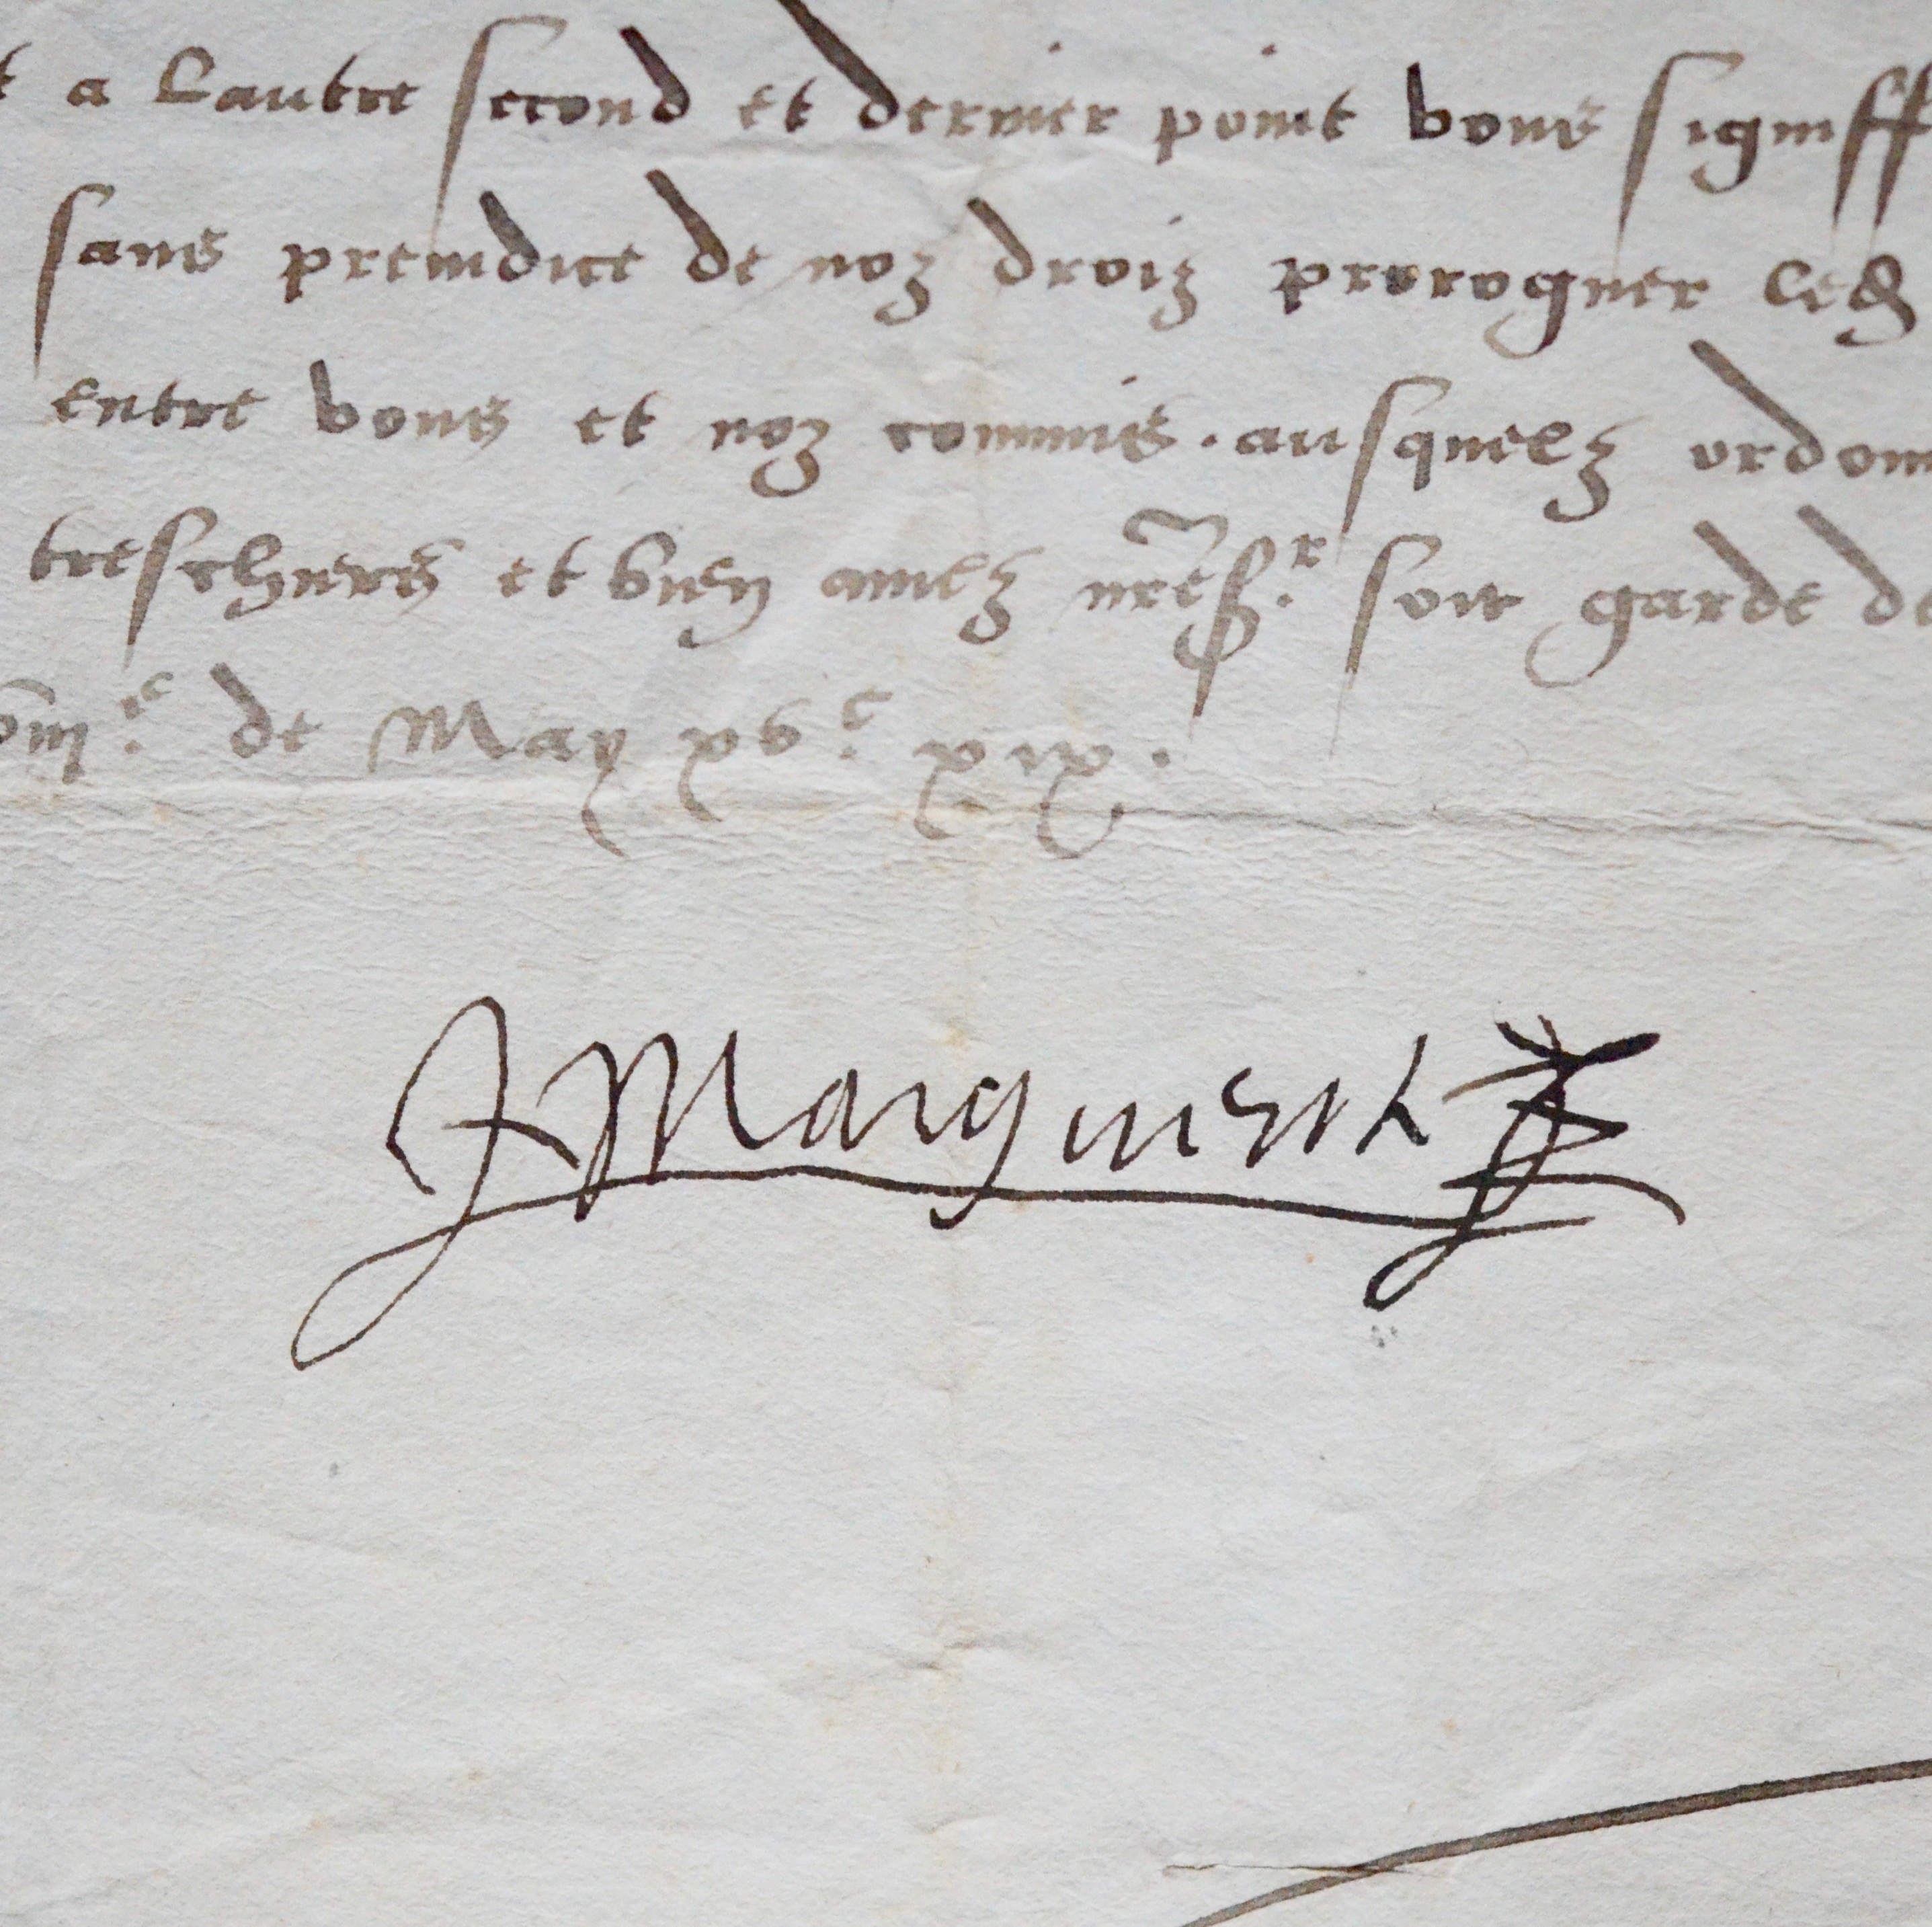 t a lautre second et dernier point vous signiff
sans preiudice de noz droiz proroguer led
entre vous et noz commis . ausquelz ordonn
treschiers et bien amez nre sr soit garde de
viije de May xve xix .
Marguerite